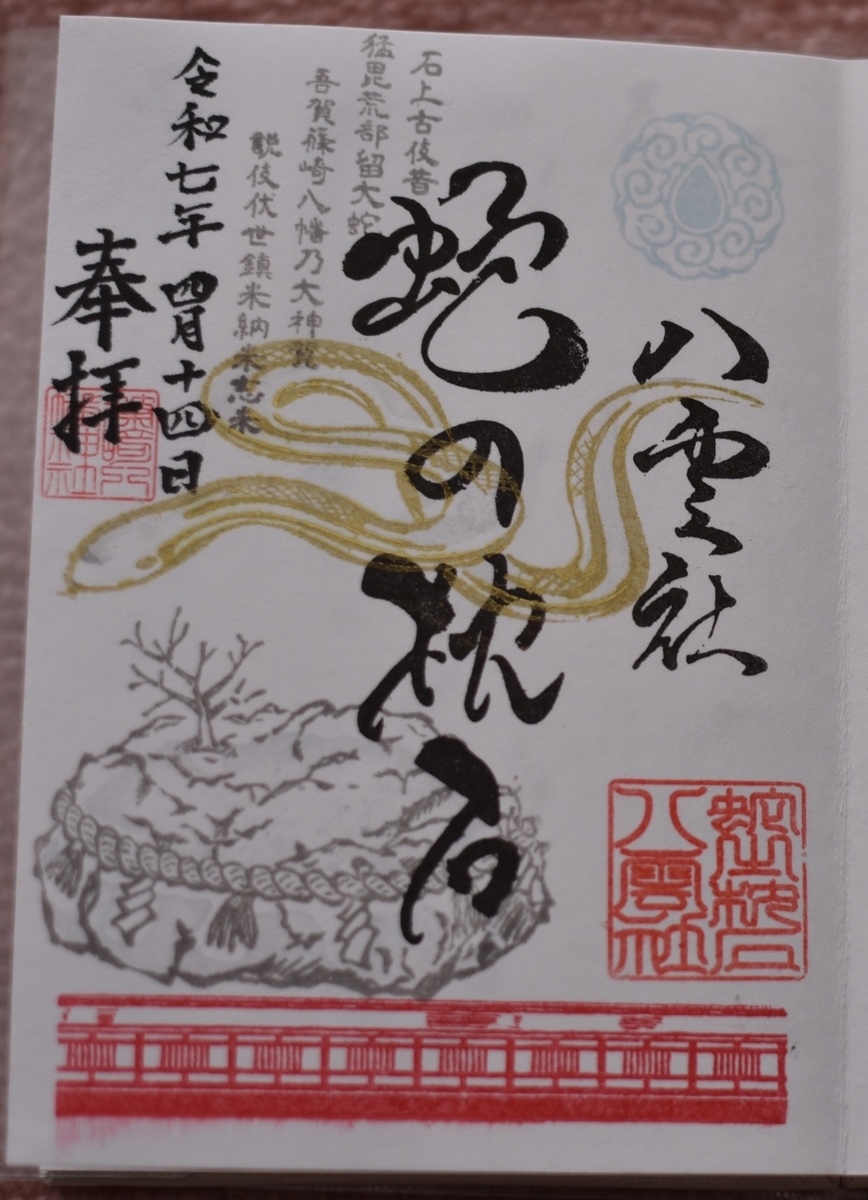 八雲社
蛇の枕石
石上古伎昔
猛毘荒部留大蛇
吾賀篠崎八幡乃大神
説伎伏世鎮米納
令和七年四月十四日
奉拝
蛇枕石
八雲社
篠崎八
幡神社